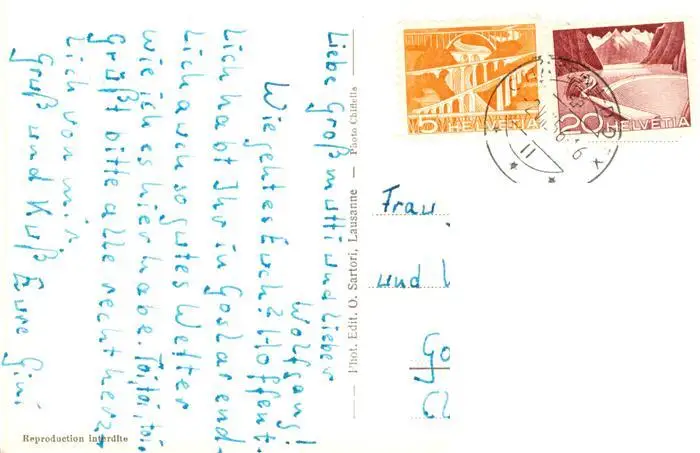 Liebe Großmutti und lieber
Wolfgang!
Wie geht es Euch? Hoffent-
lich habt Ihr in Goslar end-
lich auch so gutes Wetter
wie ich es hier habe.
Grüßt bitte alle recht herz-
lich von mir.
Gruß und Kuß Eure Gini
Phot. Edit. O. Sartori, Lausanne — Photo Chiffelle
Reproduction interdite
5 HELVETIA
20 HELVETIA
Frau
und
Go